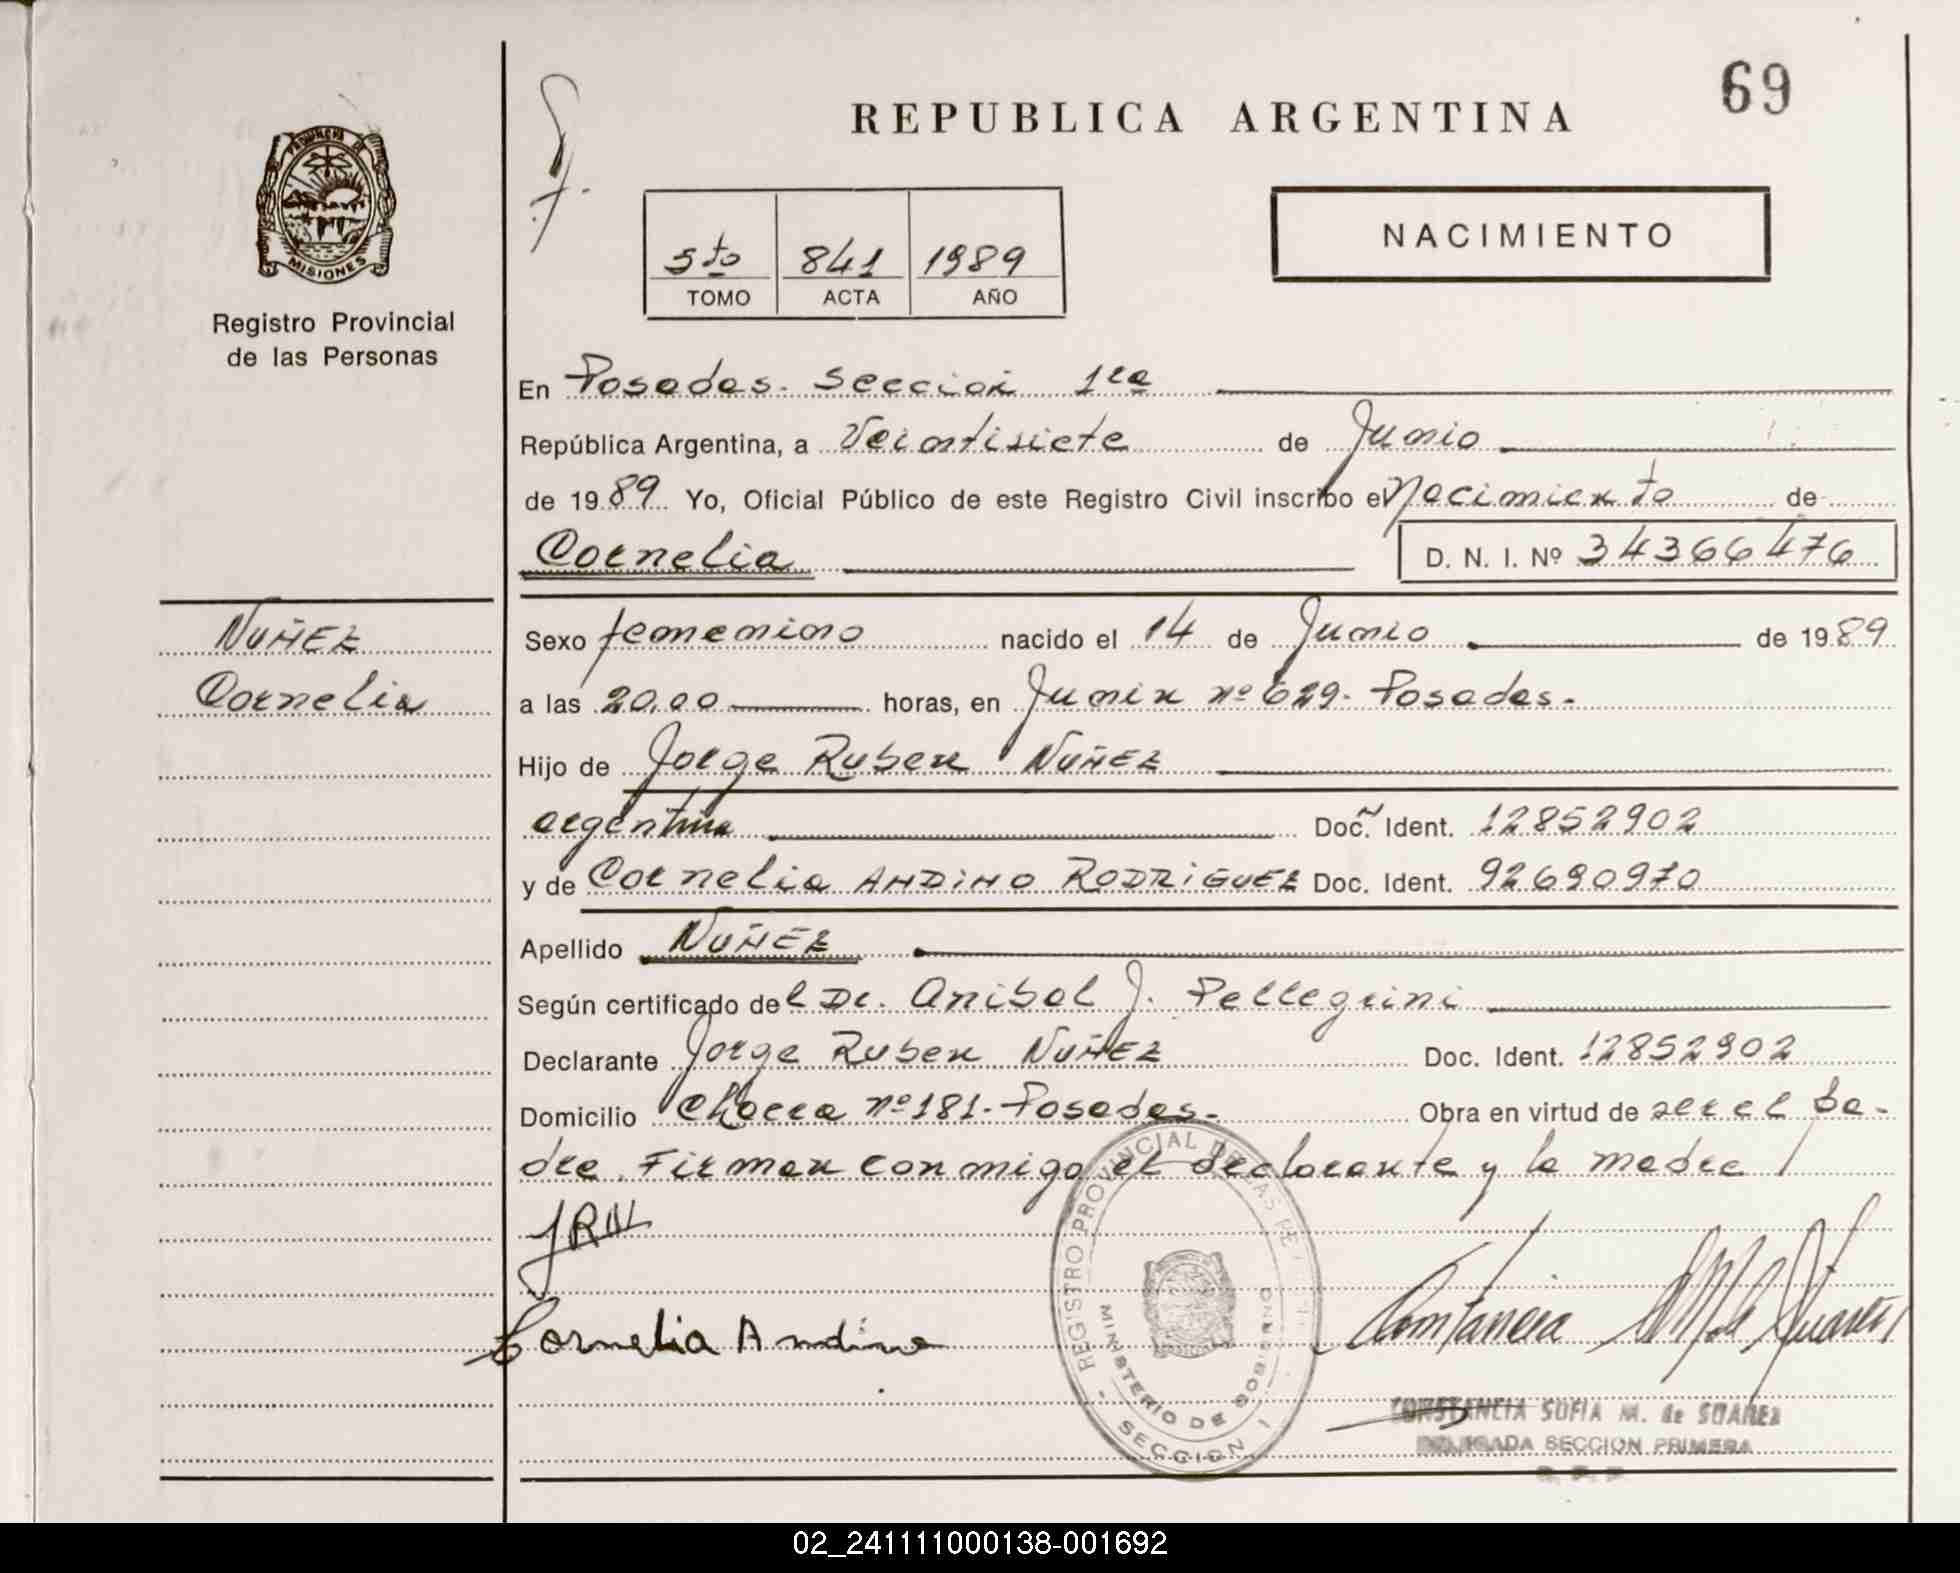 69
REPUBLICA ARGENTINA
NACIMIENTO
PROVINCIA DE
MISIONES
Registro Provincial
de las Personas
5to 841 1989
TOMO ACTA AÑO
En Posadas. Seccion 1ra
República Argentina, a Veintisiete de Junio
de 1989 Yo, Oficial Público de este Registro Civil inscribo el Nacimiento de
Cornelia D. N. I. Nº 34366476
NUÑEZ
Cornelia
Sexo femenino nacido el 14 de Junio de 1989
a las 20,00 horas, en Junin nº 629. Posadas.
Hijo de Jorge Ruben NUÑEZ
argentina Doc. Ident. 12852902
y de Cornelia ANDINO RODRIGUEZ Doc. Ident. 92690970
Apellido NUÑEZ
Según certificado del Dr. Anibal J. Pellegrini
Declarante Jorge Ruben NUÑEZ Doc. Ident. 12852902
Domicilio Chacra nº 181. Posadas. Obra en virtud de ser el pa-
dre. Firman conmigo el declarante y la madre
JRN
Cornelia Andino
REGISTRO PROVINCIAL DE LAS PE
MINISTERIO DE GOBIERNO
SECCION 1
CONSTANCIA SOFIA M. de SUAREZ
DELEGADA SECCION PRIMERA
02_241111000138-001692